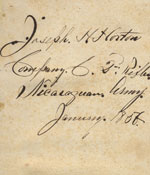 Joseph. H. Horton
Company. C. Rifles
Nicaraguan Army.
January. 1856.